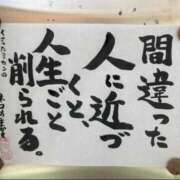 間違った
人に近づ
くと、
人生ごと
削られる。